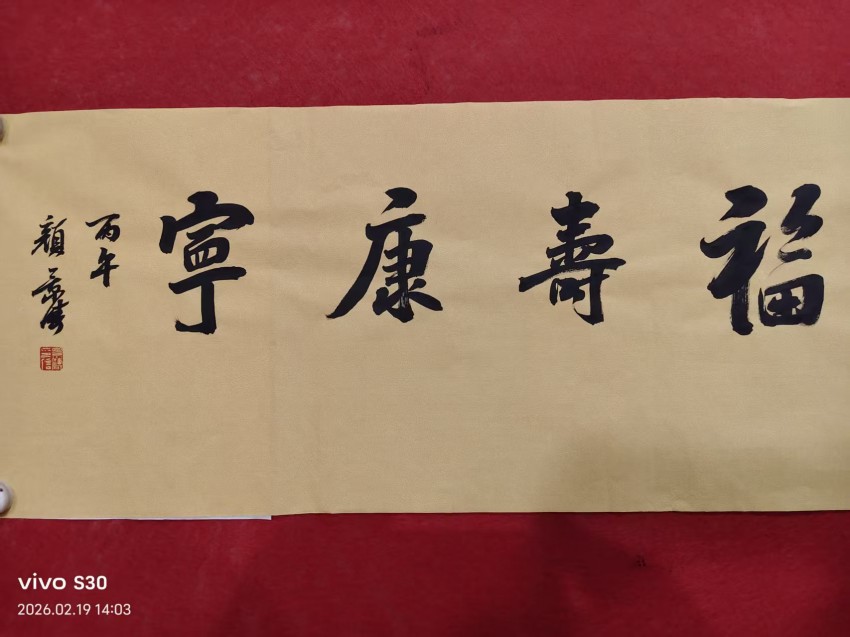 福壽康寧
丙午
顏景
vivo S30
2026.02.19 14:03